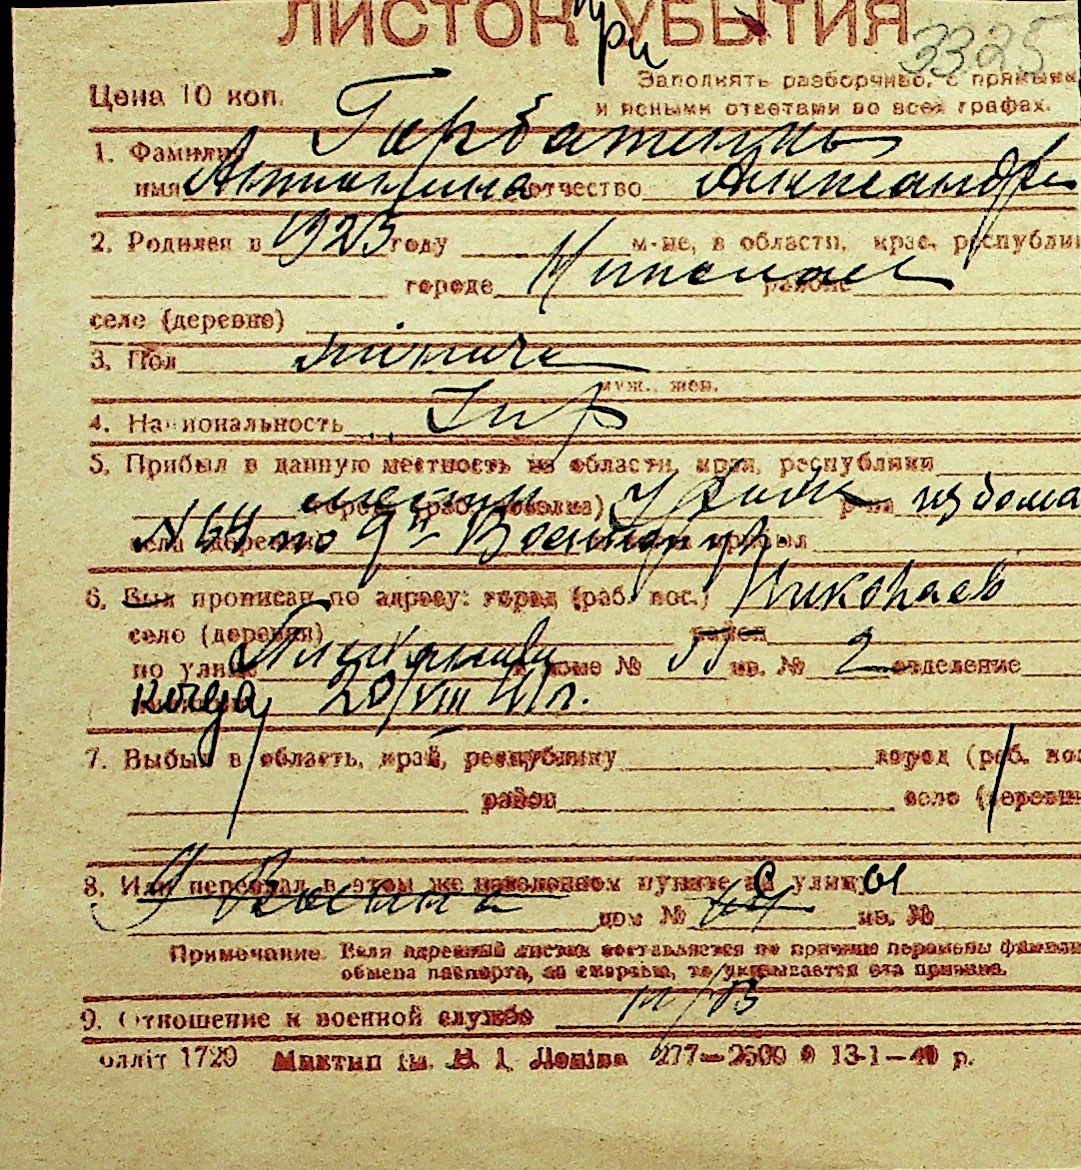 при
ЛИСТОК УБЫТИЯ
3325
Заполнять разборчиво, с прямыми
и ясными ответами во всех графах.
Цена 10 коп.
1. Фамилия Горбатюк
имя отчество Александр
2. Родился в 1923 году м-це, в области, крае, республи
городе Николаев районе
селе (деревне)
3. Пол жіноча
муж., жен.
4. Национальность Укр
5. Прибыл в данную местность из области, края, республики
города (раб. поселка) р-на из дома
села (деревни) N 64 по 9й Военной ул. прибыл
6. Был прописан по адресу: город (раб. пос.) Николаев
село (деревня) район
по улице доме № 55 кв. № 2 отделение
когда 20/VIII 41 г.
7. Выбыл в область, край, республику город (раб. пос
район село (деревн
8. Или переехал в этом же населенном пункте с улицы
9 Военна дом № 64 кв. №
Примечание. Если адресный листок составляется по причине перемены фамили
обмена паспорта, за смертью, то указывается эта причина.
9. Отношение к военной службе
оллiт 1729 Миктип iм. В. I. Ленiна 277—2500 13-1—40 р.